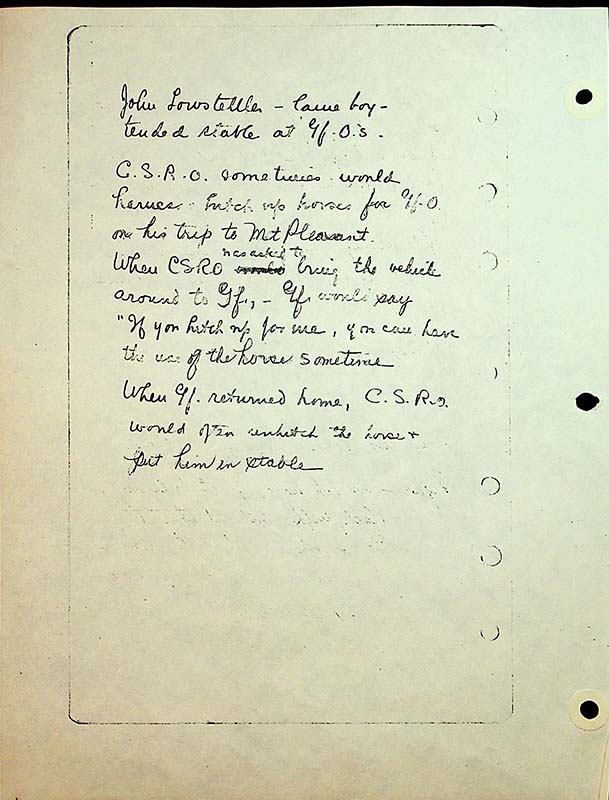 John Lowstetter - lame boy -
tended stable at Gf. O's -
C.S.R.O. sometimes would
harness - hitch up horses for Gf. O
on his trip to Mt Pleasant.
was asked to
When CSRO would bring the vehicle
around to Gf., - Gf. would say
"If you hitch up for me, you can have
the use of the horse sometime
When Gf. returned home, C.S.R.O.
would often unhitch the horse +
put him in stable